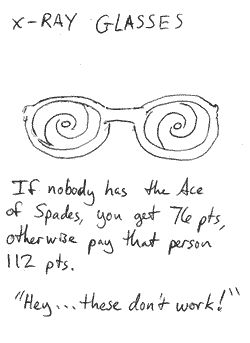 X-RAY GLASSES
If nobody has the Ace
of Spades, you get 76 pts,
otherwise pay that person
112 pts.
"Hey... these don't work!"